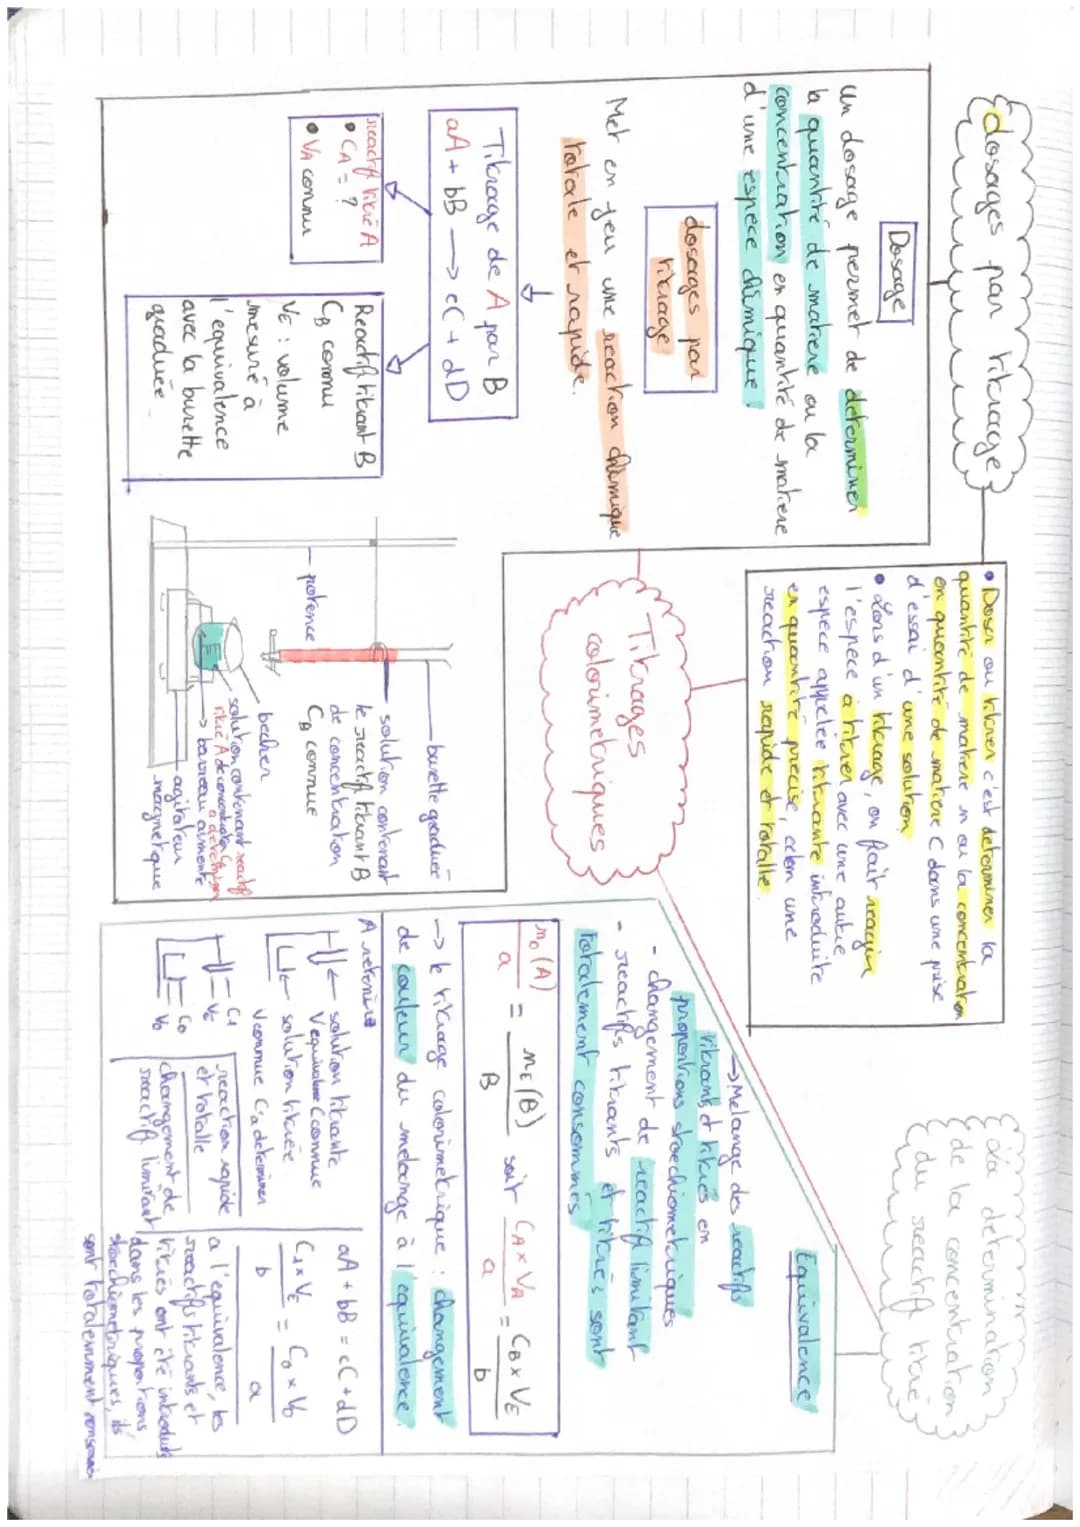 dosages par titrage
Dosage
Un dosage permet de déterminer
la quantité de matiere ou la
concentration en quantité de matiere
d'une espèce chimique
dosages par
titrage
Met en jeu une reaction chimique
totale et rapide.
Titrage de A par B
aA + bB → cC + dD
reactif titré A
• CA = ?
• VA connu
Reactif titrant B
CB connu
VE : volume
mesuré à
l'equivalence
avec la burette
graduée
• Doser ou titrer c'est determiner la
quantité de matiere n ou la concentration
en quantité de matiere C dans une prise
d'essai d'une solution
• Lors d'un titrage, on fait reagir
l'espèce à titrer avec une autre
espece appelée titrante introduite
en quantité precise, selon une
reaction rapide et totalle
Titrages
colorimetriques
burette graduée
solution contenant
le reactif titrant B
de concentration
CB connue
potence
becher
solution contenant reactif
titré A de concentration CA
a determiner
→ barreau aimenté
agitateur
magnetique
la determination
de la concentration
du reactif titré
Equivalence
→ Melange des reactifs
titrants et titrés en
proportions stoechiometriques
- changement de reactif limitant
- reactifs titrants et titrés sont
totalement consommés
n0(A)/a = nE(B)/B soit CA x VA/a = CB x VE/b
→ le titrage colorimetrique : changement
de couleur du melange à l'equivalence.
A retenir
← solution titrante
V equivalence C connue
← solution titrée
V connue C a determiner
= C1
= VE
= C0
= V0
reaction rapide
et totalle
changement de
reactif limitant
aA + bB = cC + dD
C1 x VE/b = C0 x V0/a
a l'équivalence, les
reactifs titrants et
titrés ont été introduits
dans les proportions
stoechiometriques, ils
sont totalemment consommés